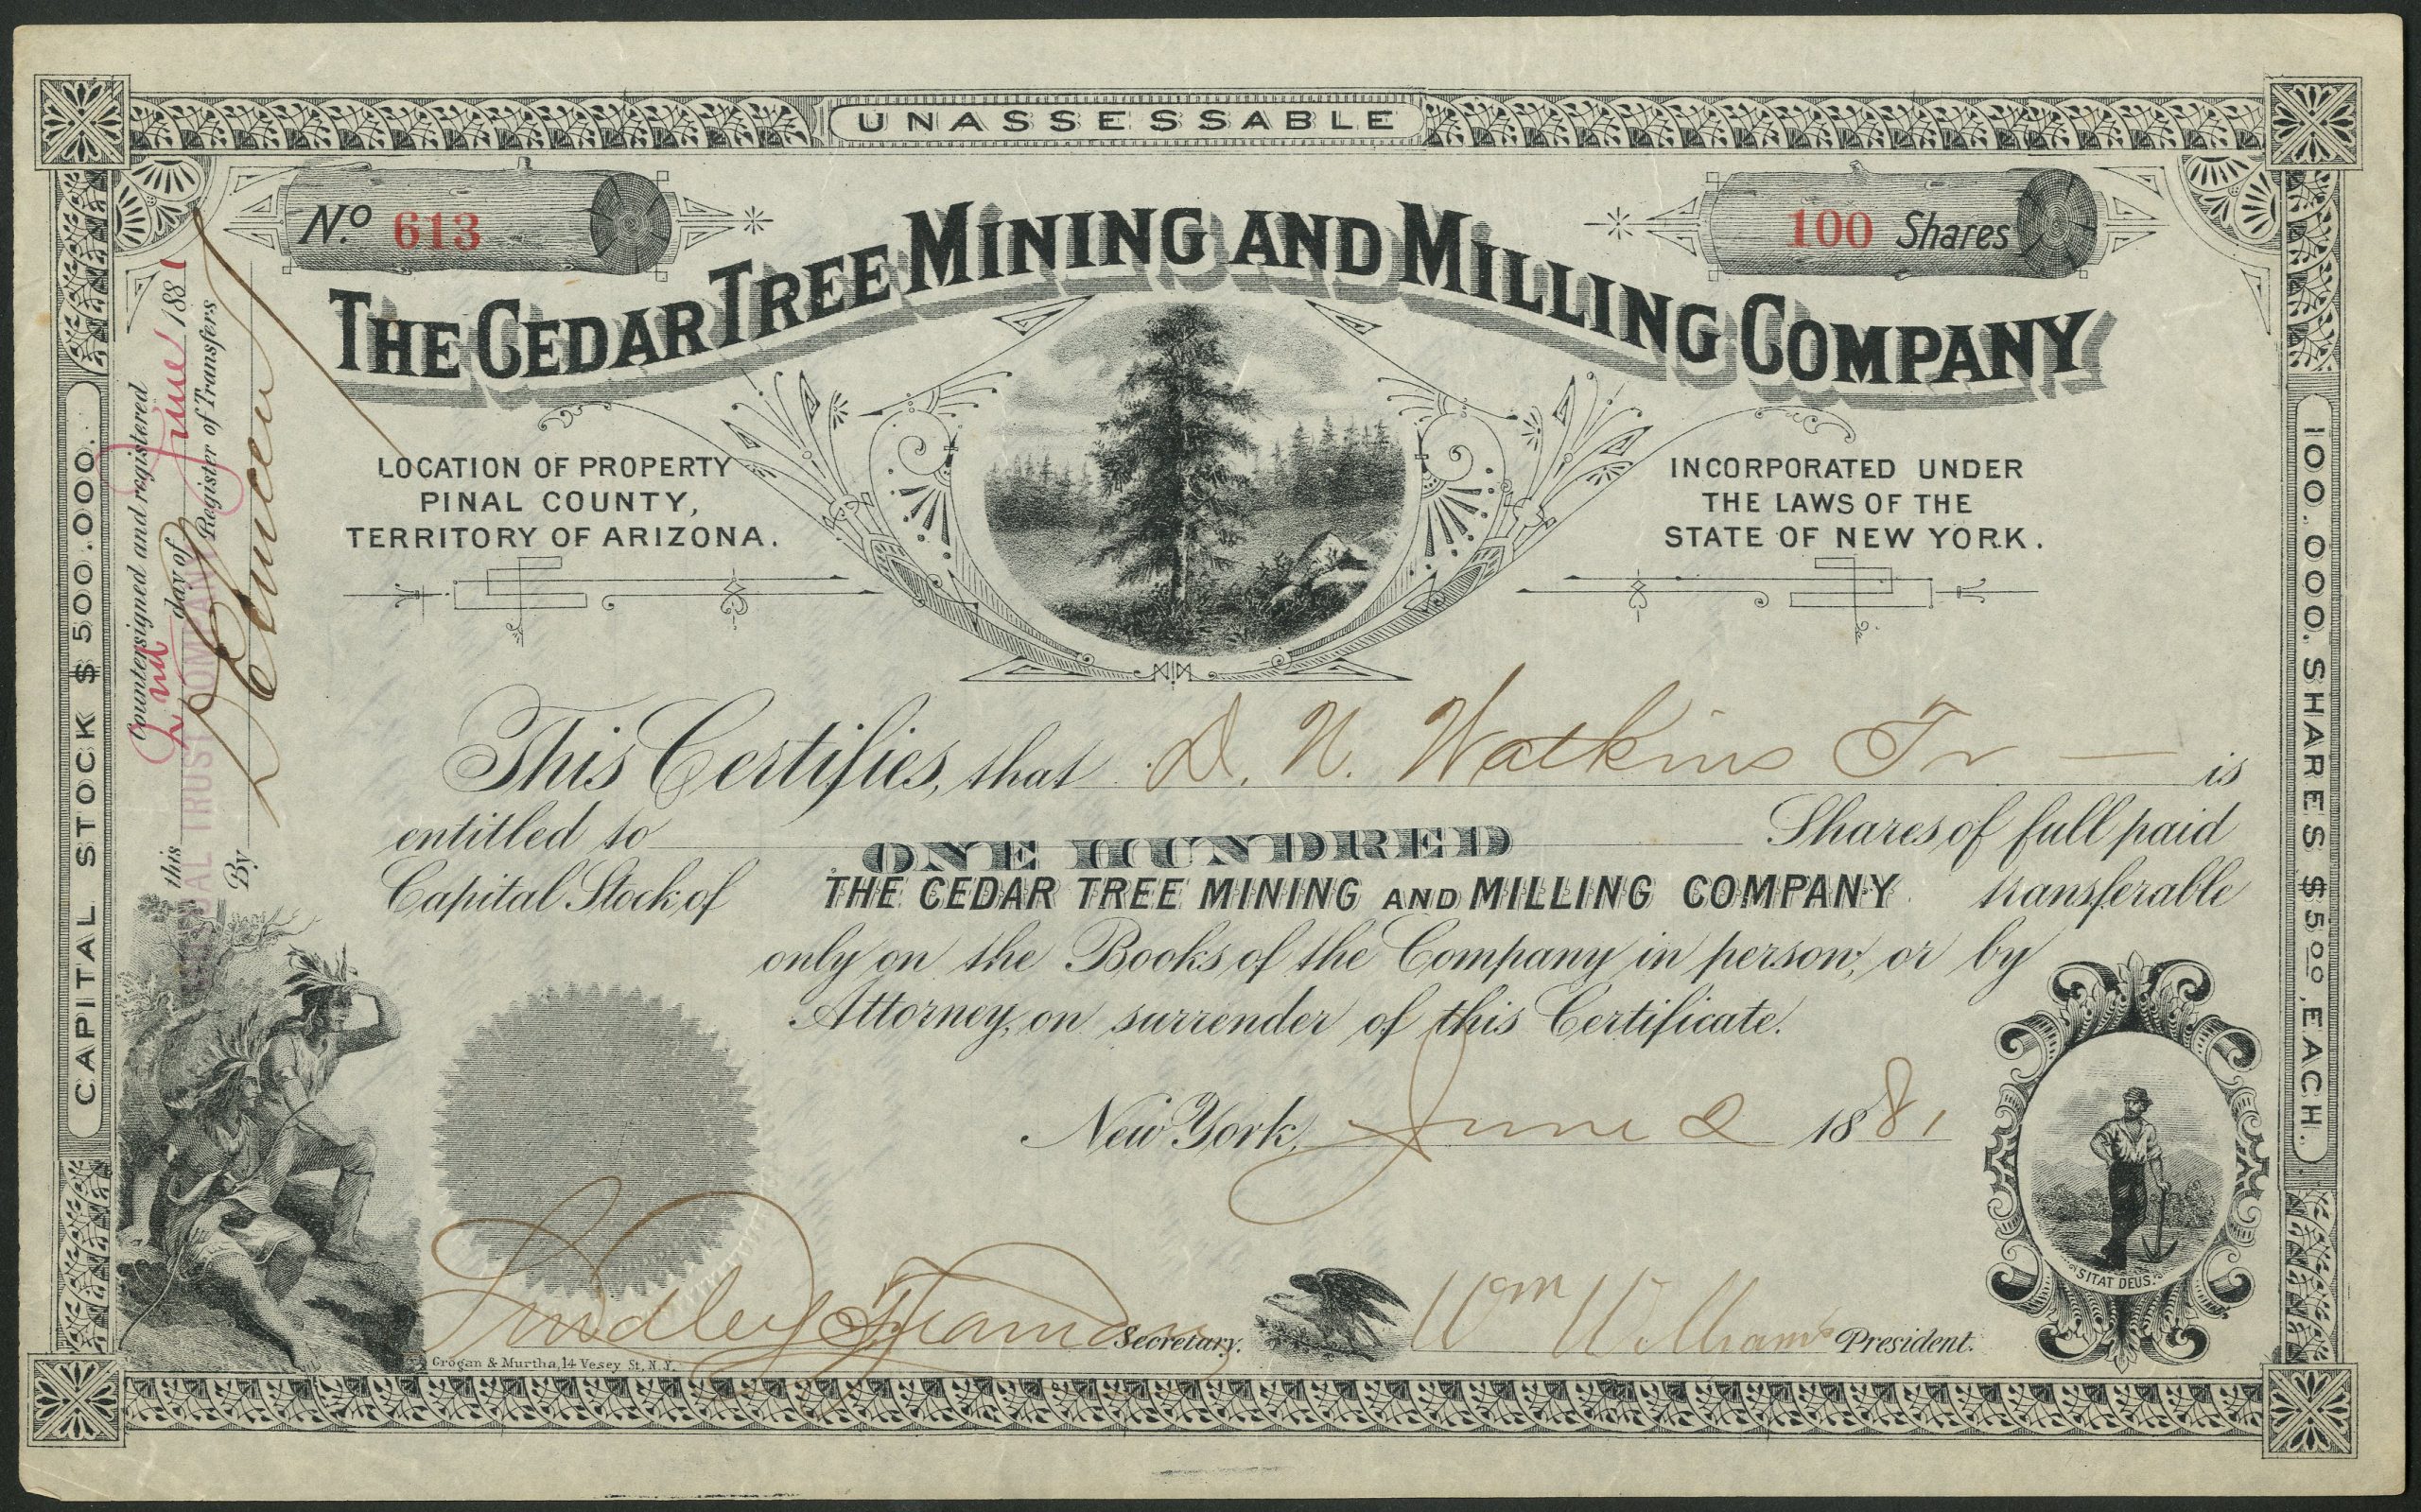 UNASSESSABLE
No. 613
100 Shares
THE CEDAR TREE MINING AND MILLING COMPANY
LOCATION OF PROPERTY
PINAL COUNTY,
TERRITORY OF ARIZONA.
INCORPORATED UNDER
THE LAWS OF THE
STATE OF NEW YORK.
This Certifies, that D. N. Watkins Tr — is
entitled to ONE HUNDRED Shares of full paid
Capital Stock of THE CEDAR TREE MINING AND MILLING COMPANY transferable
only on the Books of the Company in person, or by
Attorney, on surrender of this Certificate.
New York, June 2 1881
Secretary.
Wm Williams President.
Grogan & Murtha, 14 Vesey St, N.Y.
SITAT DEUS.
CAPITAL STOCK $500.000.
100.000. SHARES $5.00, EACH.
Countersigned and registered
this 2nd day of June 1881
TRUST COMPANY
Register of Transfers
By